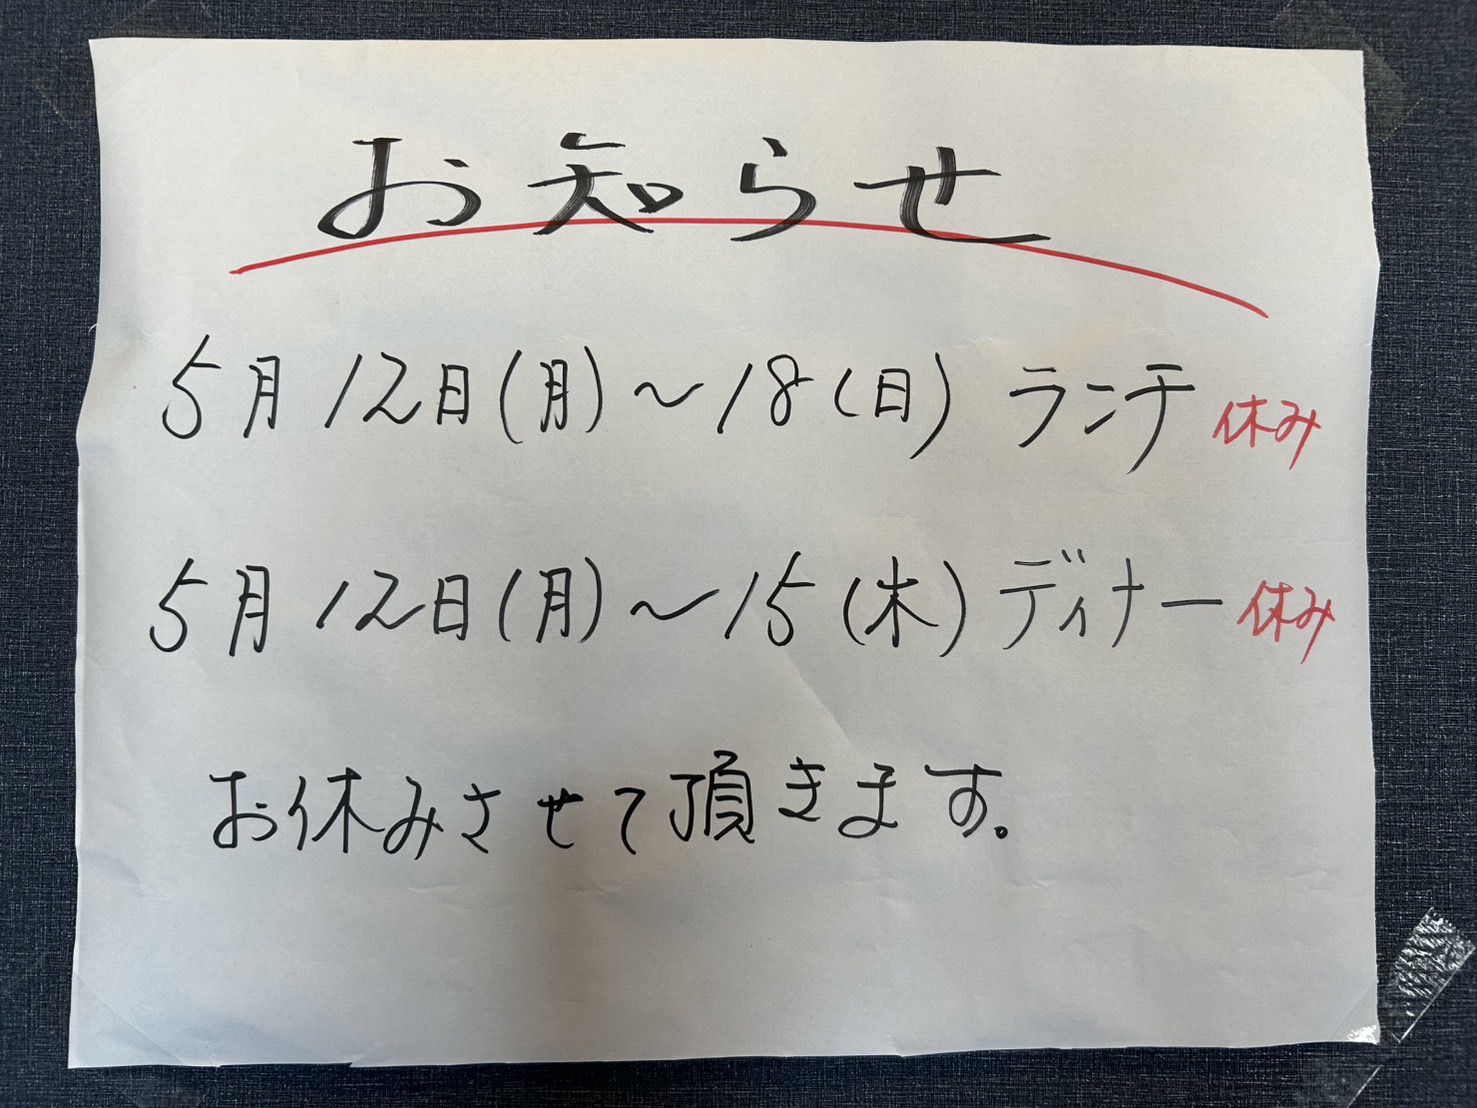 お知らせ
5月12日(月)〜18(日)ランチ休み
5月12日(月)〜15(木)ディナー休み
お休みさせて頂きます。